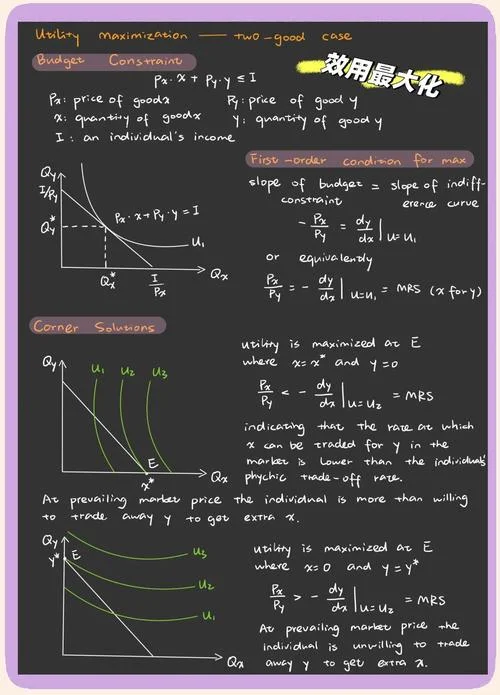 Utility maximization — two-good case
Budget Constraint
效用最大化
Px · x + Py · y ≤ I
Px: price of good x Py: price of good y
x: quantity of good x y: quantity of good y
I: an individual's income
First-order condition for max
slope of budget constraint = slope of indifference curve
- Px/Py = dy/dx | U=U₁
or equivalently
Px/Py = - dy/dx | U=U₁ = MRS (x for y)
Qy
I/Py
Qy*
Px · x + Py · y = I
U₁
Qx*
I/Px
Qx
Corner Solutions
Qy
U₁ U₂ U₃
E
x*
Qx
utility is maximized at E
where x=x* and y=0
Px/Py < - dy/dx | U=U₂ = MRS
indicating that the rate at which
x can be traded for y in the
market is lower than the individual's
phychic trade-off rate.
At prevailing market price the individual is more than willing
to trade away y to get extra x.
Qy
y*
E
U₃
U₂
U₁
Qx
utility is maximized at E
where x=0 and y=y*
Px/Py > - dy/dx | U=U₂ = MRS
At prevailing market price the
individual is unwilling to trade
away y to get extra x.